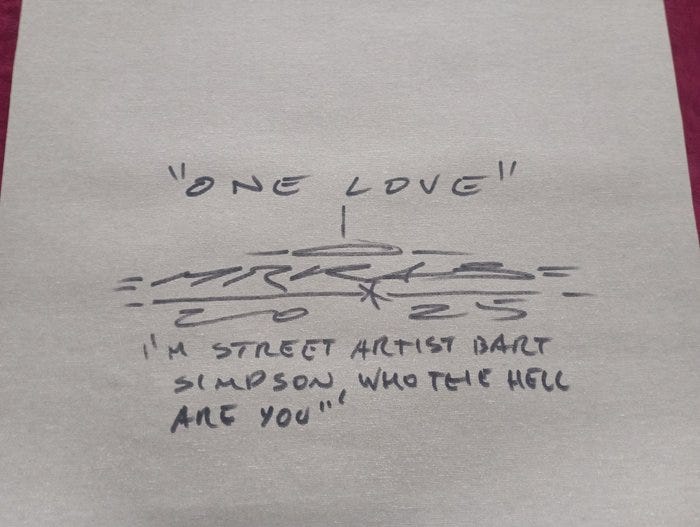 "ONE LOVE"
20 25
I'M STREET ARTIST BART
SIMPSON, WHO THE HELL
ARE YOU"